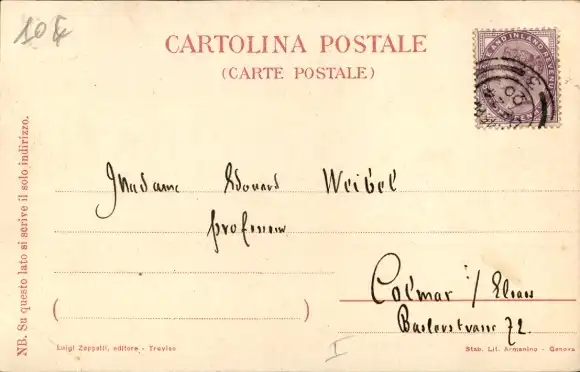 10 €
CARTOLINA POSTALE
(CARTE POSTALE)
AND INLAND REVENUE
Madame Edouard Weibel
professeur
Colmar i/ Elsass
Baslerstrasse 72.
NB. Su questo lato si scrive il solo indirizzo.
( )
Luigi Zoppelli, editore - Treviso
I
Stab. Lit. Armanino - Genova